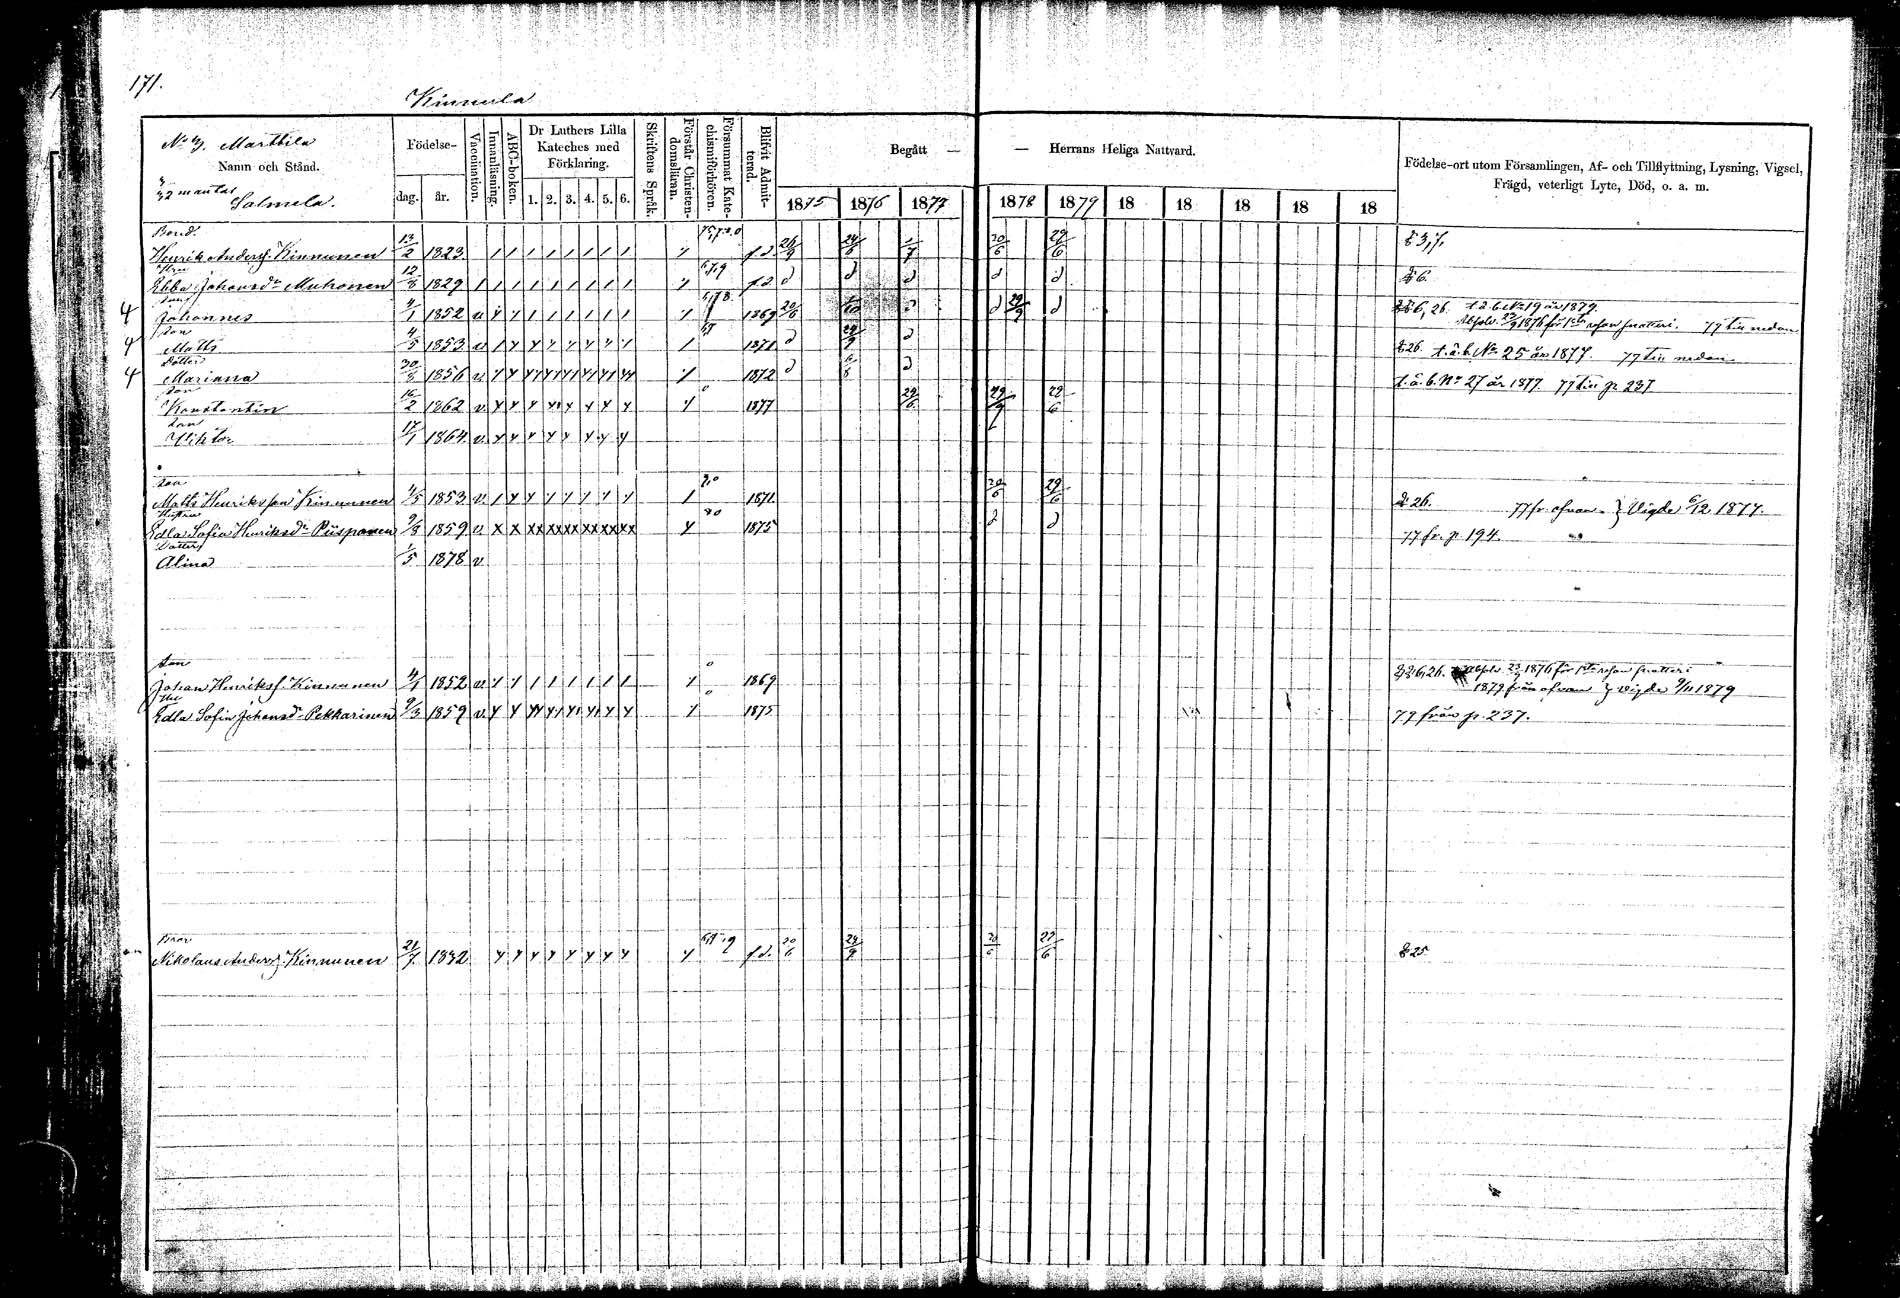 171.
Kinnula
No 9. Marttila
Namn och Stånd.
mantal
Salmela.
Födelse-
dag. år.
Vaccination.
Innanläsning.
ABC-boken.
Dr Luthers Lilla
Kateches med
Förklaring.
1. 2. 3. 4. 5. 6.
Skriftens Språk.
Förstår Christen-
domsläran.
Försummat Kate-
chismiförhören.
Blifvit Admit-
terad.
Begått — — Herrans Heliga Nattvard.
1875 1876 1877 1878 1879 18 18 18 18 18
Födelse-ort utom Församlingen, Af- och Tillflyttning, Lysning, Vigsel,
Frägd, veterligt Lyte, Död, o. a. m.
Bond.
Henrik Andersf. Kinnunen 13/2 1823 f.d. 26/9 24/6 1/7 20/6 29/6
Hru
Ebba Johansdr Muhonen 12/8 1829 f.d. d d d d d
Son
4 Johannes 4/1 1852 v. 1869 20/6 d d 29/9 d 6, 26. t.ä.b. No 19 år 1879.
Son
4 Matts 4/5 1853 v. 1871 d 24/9 d 26. t.ä.b. No 25 år 1877. 77 till nedan
Dotter
4 Marianna 30/8 1856 v. 1872 d 6/8 d t.ä.b. No 27 år 1877 77 till p. 237
Son
Konstantin 16/2 1862 v. 1877 24/6 29/9 22/6
Son
Viktor 17/1 1864 v.
Son
Matts Henriksson Kinnunen 4/5 1853 v. 1871 20/6 29/6 26. 77 fr. ofvan } Vigde 6/12 1877.
Hustru
Edla Sofia Henriksdr Piispanen 9/8 1859 v. 1875 d d 77 fr. p. 194.
Dotter
Alina 1/5 1878 v
Son
Johan Henriksf. Kinnunen 4/1 1852 v. 1869 6, 26.
1879 från ofvan } Vigde 9/11 1879
Edla Sofia Johansdr Pekkarinen 9/3 1859 v. 1875 79 från p. 237.
Bror
Nikolaus Andersf. Kinnunen 21/7 1832 f.d. 20/6 24/9 20/6 22/6 25.